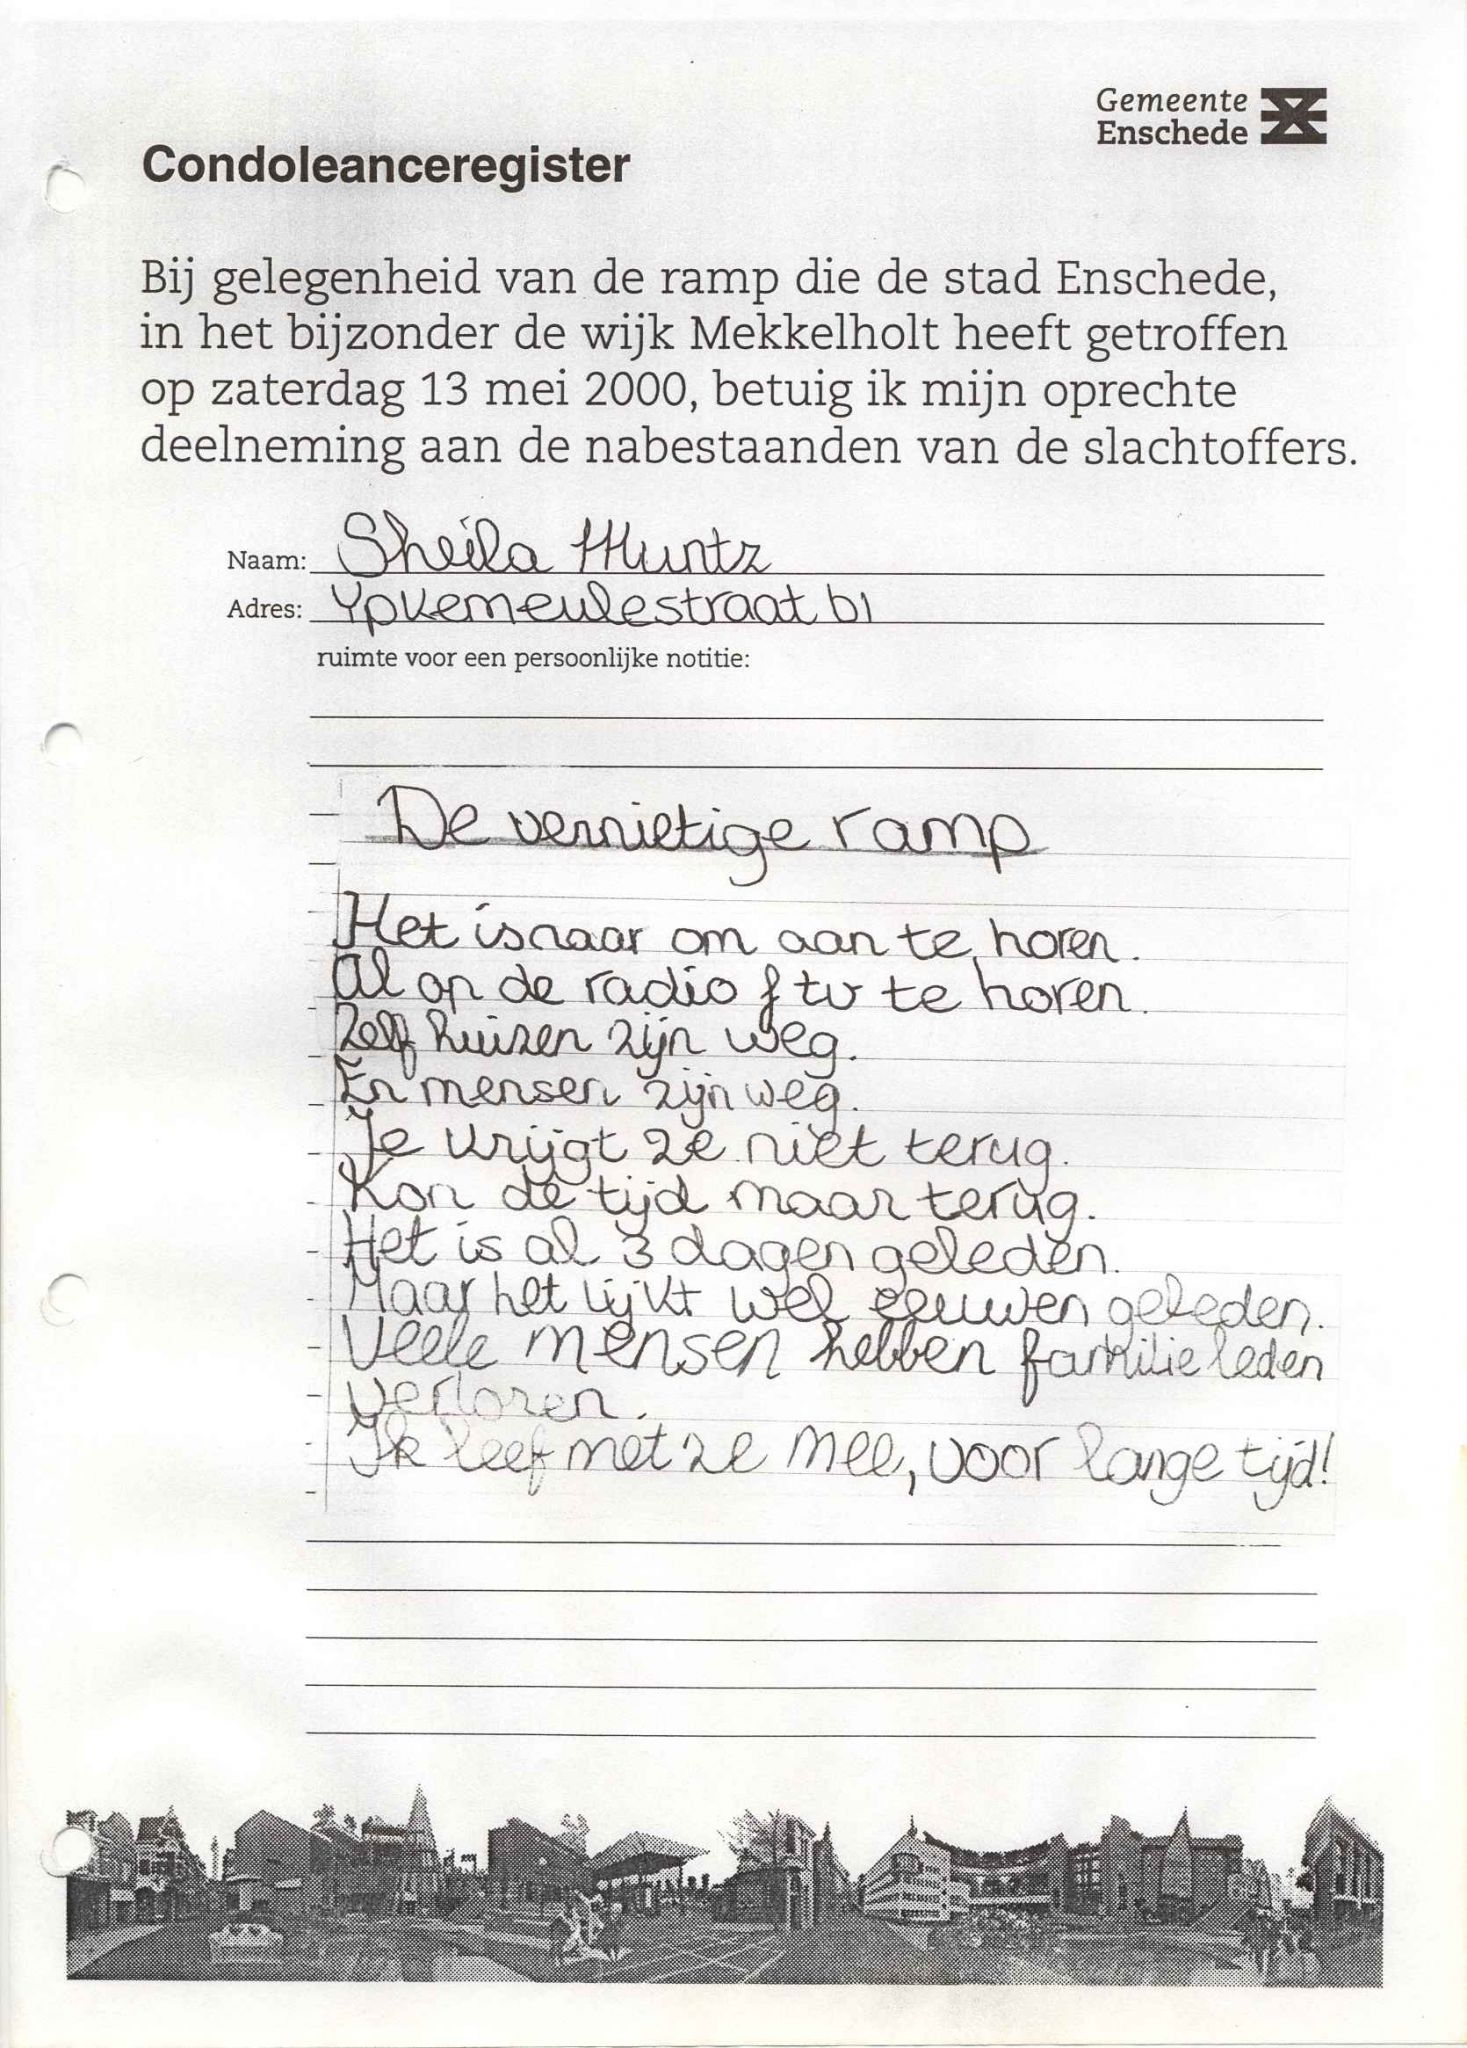 Gemeente
Enschede
Condoleanceregister
Bij gelegenheid van de ramp die de stad Enschede,
in het bijzonder de wijk Mekkelholt heeft getroffen
op zaterdag 13 mei 2000, betuig ik mijn oprechte
deelneming aan de nabestaanden van de slachtoffers.
Naam: Sheila Muntz
Adres: Ypkemeulestraat 61
ruimte voor een persoonlijke notitie:
De vernietige ramp
Het is naar om aan te horen.
Al op de radio & tv te horen.
Zelf huizen zijn weg.
En mensen zijn weg.
Je krijgt ze niet terug.
Kon de tijd maar terug.
Het is al 3 dagen geleden.
Maar het lijkt wel eeuwen geleden.
Veele mensen hebben familie leden
verloren.
Ik leef met ze mee, voor lange tijd!